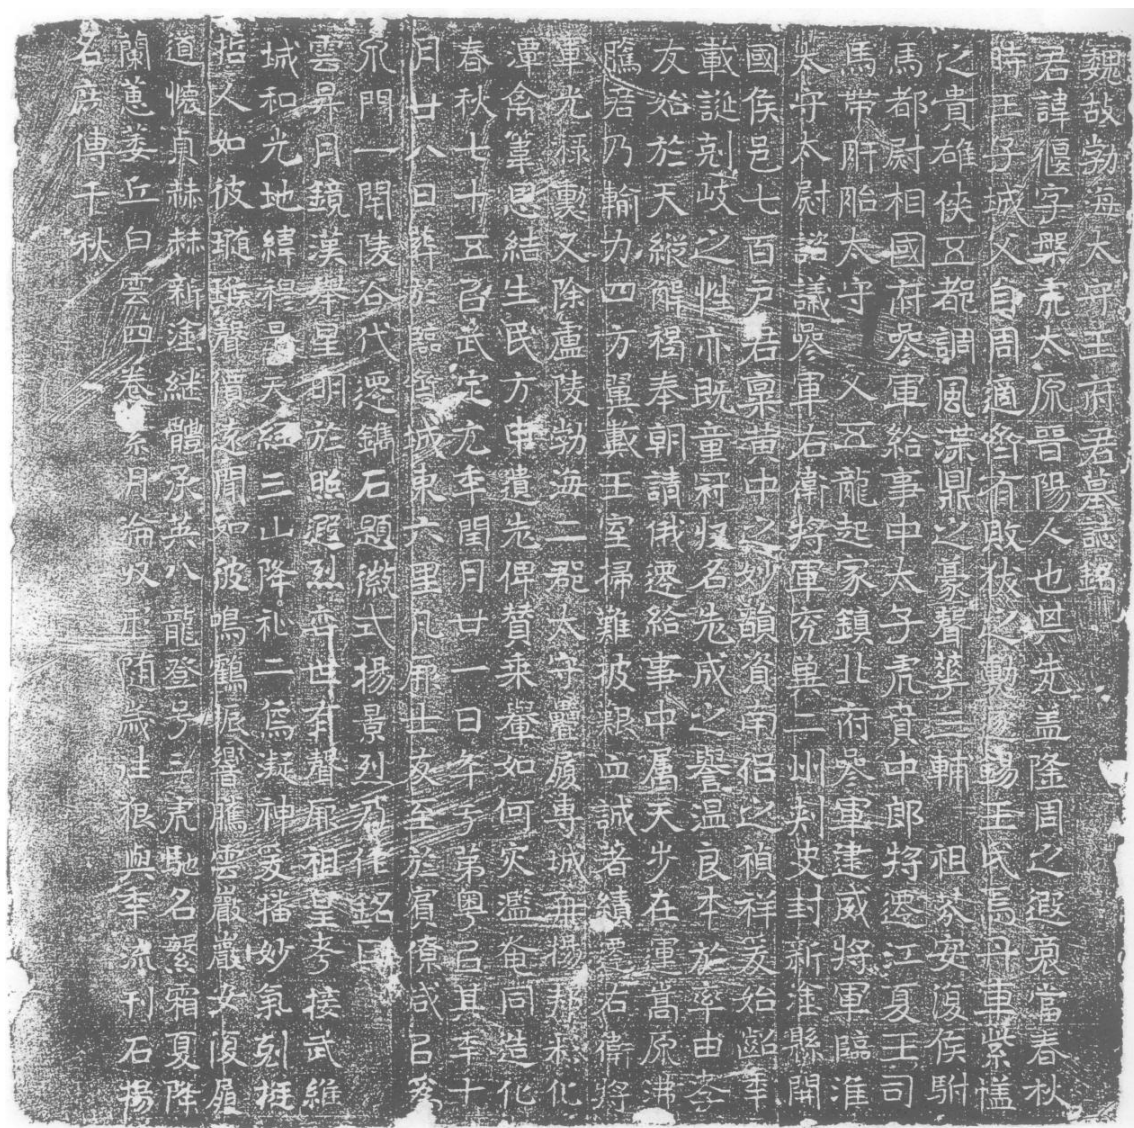 魏故勃海太守王府君墓誌銘
君諱偃字槃虎太原晉陽人也其先盖隆周之遐裔當春秋
時王子城父自周適齊有敗狄之勳遂錫王氏焉丹車紫㡌
之貴雄俠五都調風渫鼎之豪聲華三輔 祖芬安復侯駙
馬都尉相國府參軍給事中大子虎賁中郎將遷江夏王司
馬帶盱眙太守 父五龍起家鎮北府參軍建威將軍臨淮
太守太尉諮議參軍右衛將軍兖冀二州刺史封新淦縣開
國侯邑七百戶君稟黃中之妙韻資南侶之禎祥爰始齠年
載誕剋岐之性亦既童冠归名先成之譽温良本於率由孝
友始於天縱解褐奉朝請俄遷給事中属天步在運嵩原沸
騰君乃輸力四方翼戴王室掃難披艱血誠著績遷右衛將
軍光禄勳又除盧陵勃海二郡太守疊履專城再揚邦木化
潭禽葦恩結生民方申遺老俾賛乘轝如何灾濫奄同造化
春秋七十五以武定元年閏月廿一日卒于第粤以其年十
月廿八日葬於臨齊城東六里凡厥士友至於賓僚咸以為
泉門一閇陵谷代遷鐫石題徽式揚景烈乃作銘曰
雲昇月鏡漢舉星明於昭遐烈弈世有聲厥祖皇考接武維
城和光地緯穆是天經三山降祉二爲凝神爰描妙氣剋挺
哲人如彼璇璵聲價遠聞如彼鳴鶴振響騰雲巖巖女復履
道懷貞赫赫新淦継體承英八龍登号三虎馳名繁霜夏降
蘭蕙萎丘白雲四卷素月淪收形随歲往狠與年流刊石揚
名庶傳千秋